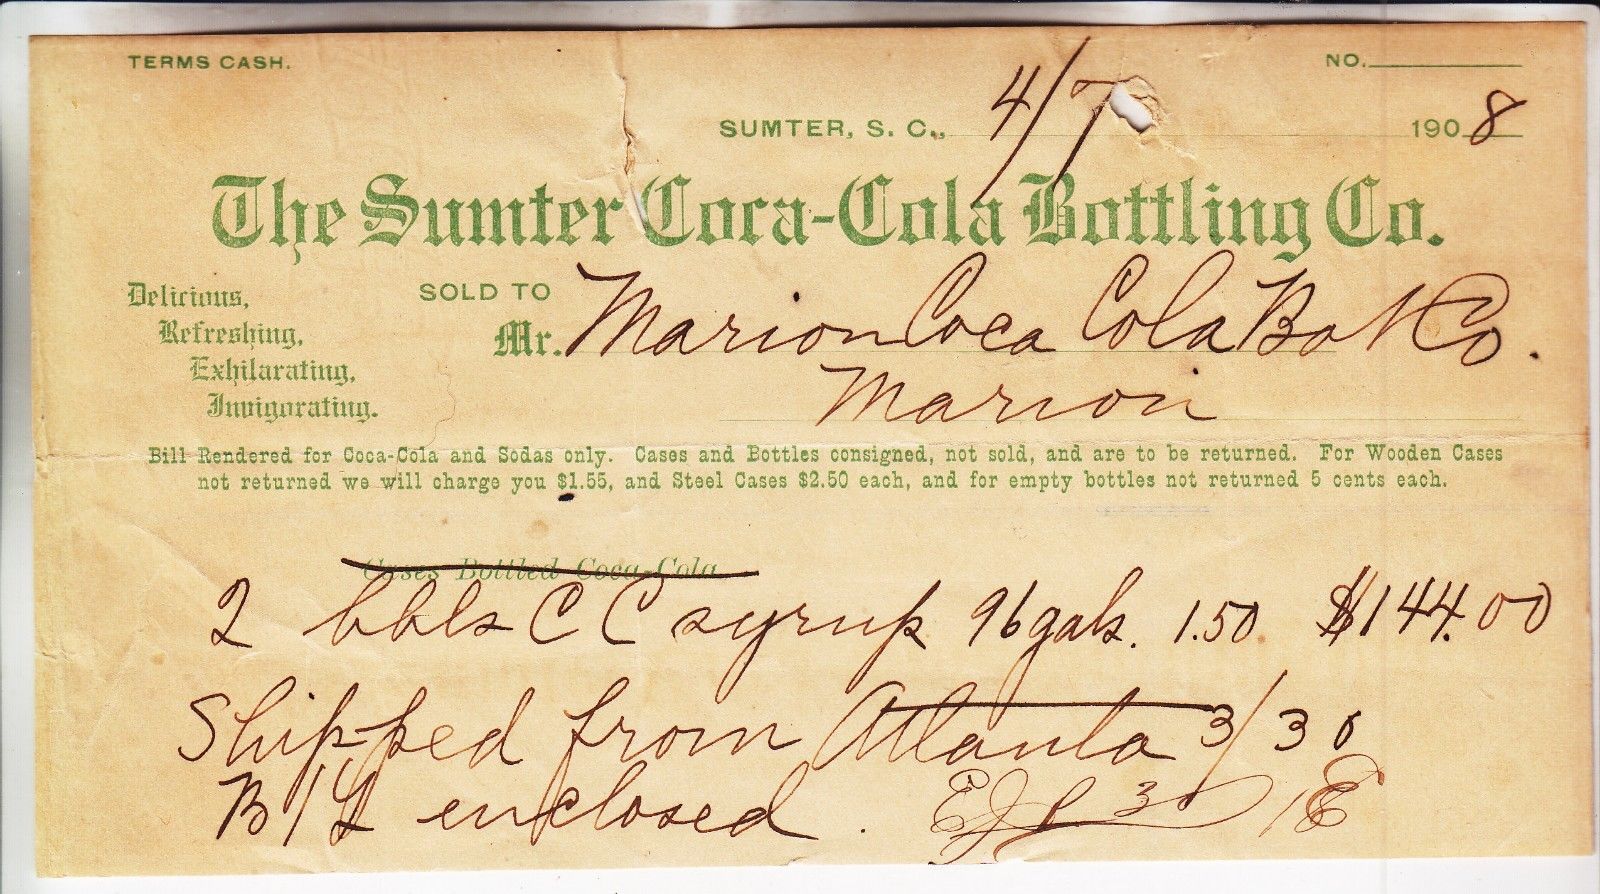 TERMS CASH.
NO.
SUMTER, S. C., 4/7 1908
The Sumter Coca-Cola Bottling Co.
Delicious,
Refreshing,
Exhilarating,
Invigorating.
SOLD TO
Mr. Marion Coca Cola Bot Co.
Marion
Bill Rendered for Coca-Cola and Sodas only. Cases and Bottles consigned, not sold, and are to be returned. For Wooden Cases
not returned we will charge you $1.55, and Steel Cases $2.50 each, and for empty bottles not returned 5 cents each.
Cases Bottled Coca-Cola
2 bbls C C syrup 96 gals. 1.50 $144.00
Shipped from Atlanta 3/30
B/L enclosed.